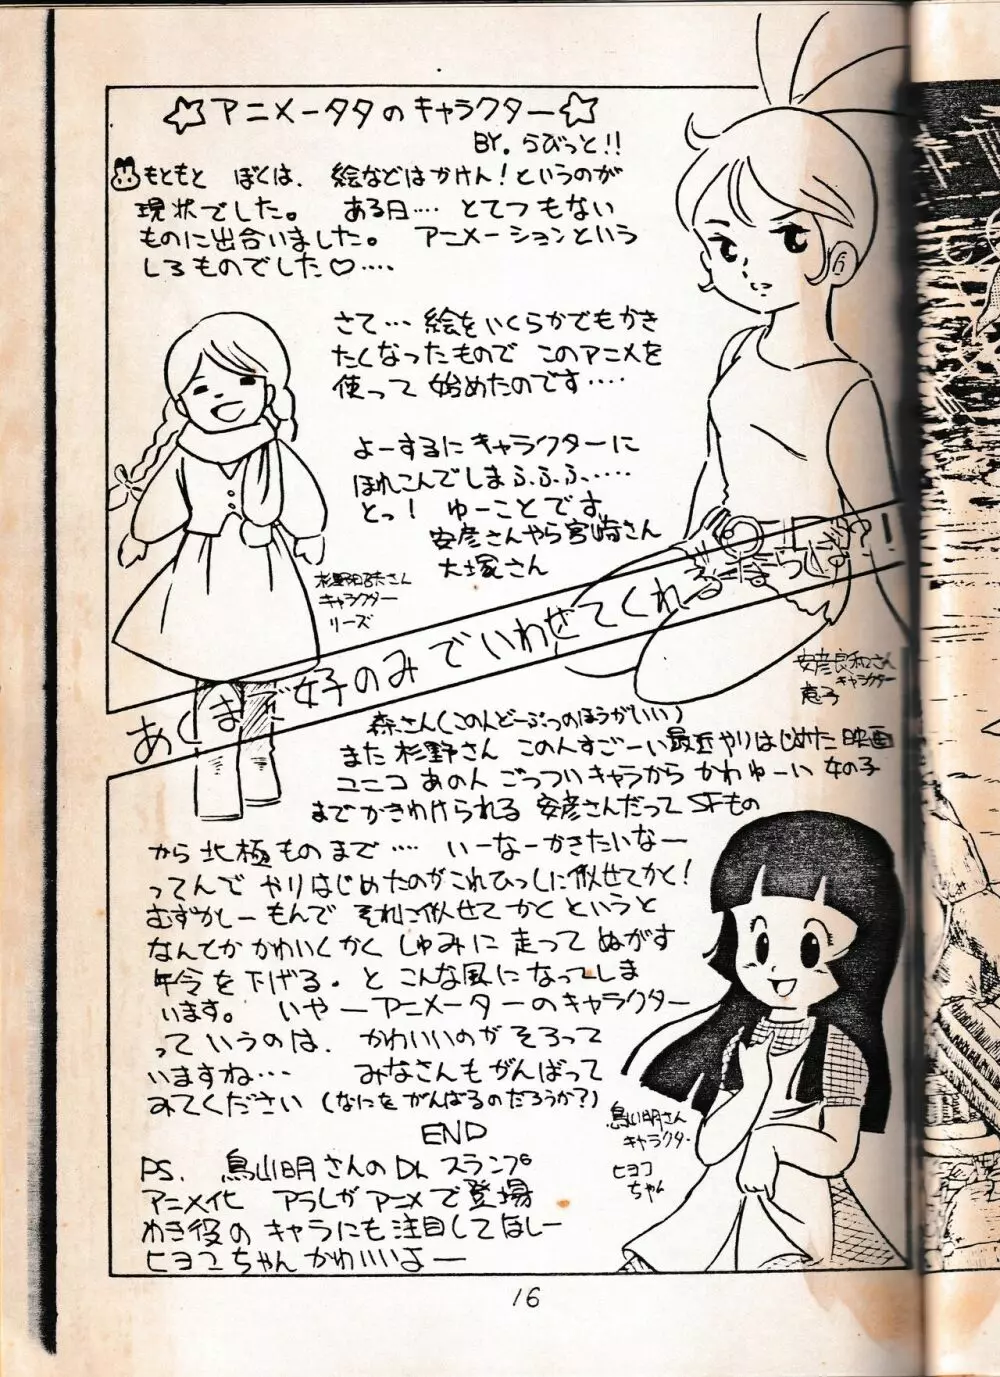 ☆アニメータタのキャラクター☆
BY. らびっと!!
もともと ぼくは、絵などはかけん!というのが
現状でした。 ある日…. とてつもない
ものに出合いました。 アニメーションという
しろものでした♡….
さて… 絵をいくらかでもかき
たくなったもので このアニメを
使って 始めたのです….
よーするにキャラクターに
ほれこんでしまふ、ふ、ふ、…..
とっ! ゆーことです。
安彦さんやら宮崎さん
大塚さん
杉野昭夫さん
キャラクター
リーズ
あくまで好のみでいわせてくれる
ならしば!!
安彦良和さん
キャラクター
恵子
森さん(この人どーぶつのほうがいい)
また 杉野さん この人すごーい最近やりはじめた映画
ユニコ あの人 ごっついキャラから かわゆーい 女の子
までかきわけられる 安彦さんだって SFもの
から 北極ものまで…. いーなーかきたいなー
ってんで やりはじめたのがこれひっしに似せてかと!
むずかしーもんで それに似せて かくというと
なんてか かわいくかく しゅみに 走って ぬがす
年令を下げる. と こんな風になってしま
います。 いや ー アニメーターのキャラクター
って いうのは、 かわいいのが そろって
いますね… みなさんもがんばって
みてください (なにをがんばるのだろうか?)
END
PS. 鳥山明さんのDr. スランプ
アニメ化 アラレがアニメで登場
わき役のキャラにも注目してほしー
ヒヨコちゃんかわいいよー
鳥山明さん
キャラクター
ヒヨコ
ちゃん
16